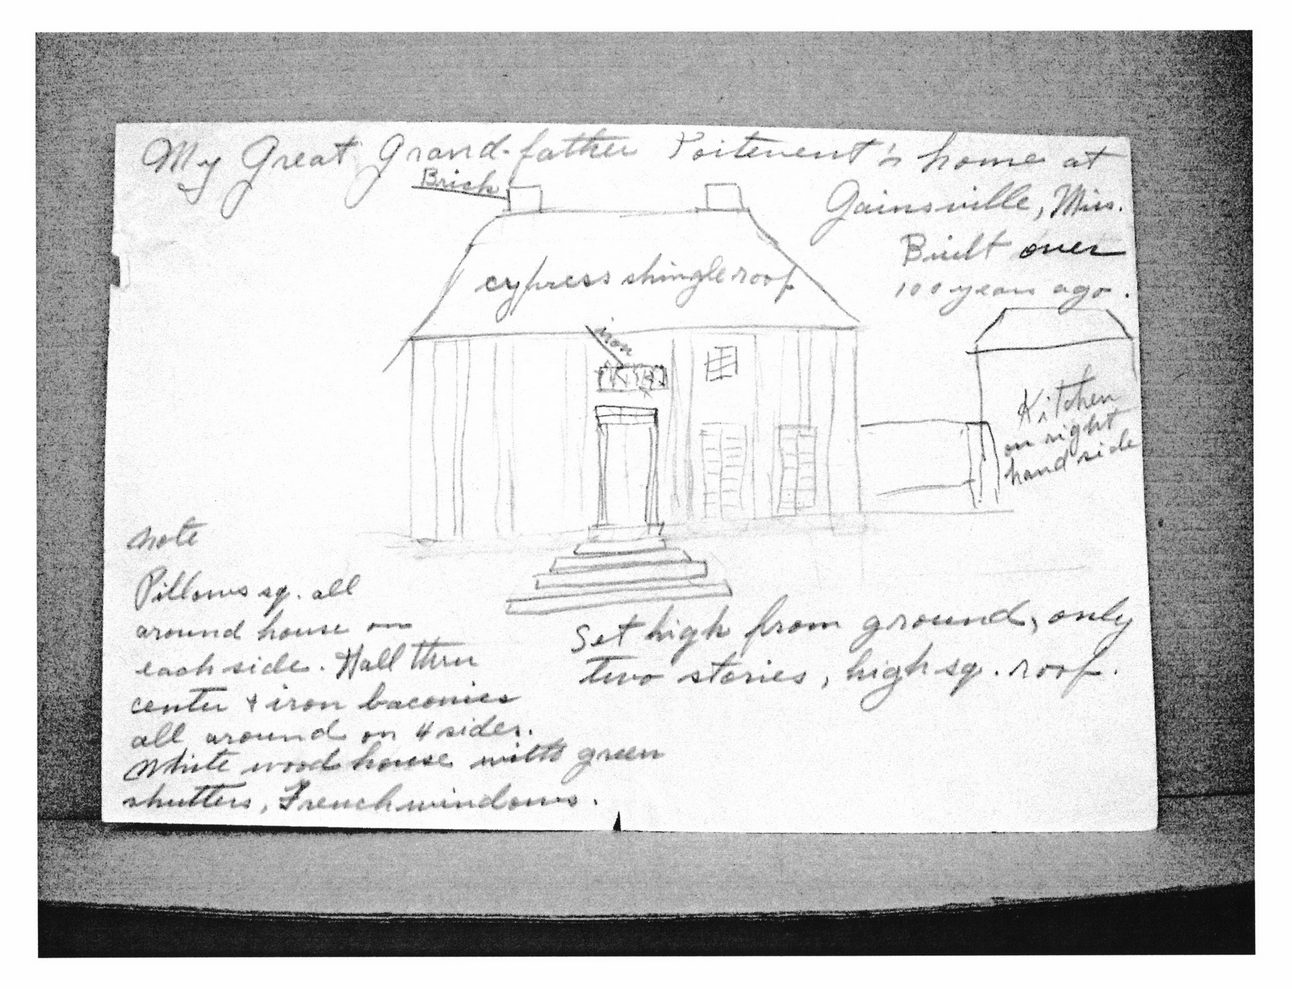 My Great Grand-father Poitevent's home at
Gainsville, Miss.
Built over
100 years ago.
Brick
cypress shingle roof
iron
Kitchen
on right
hand side
note
Pillows sq. all
around house on
each side. Hall thru
center + iron baconies
all around on 4 sides.
White wood house with green
shutters, French windows.
Set high from ground, only
two stories, high sq. roof.